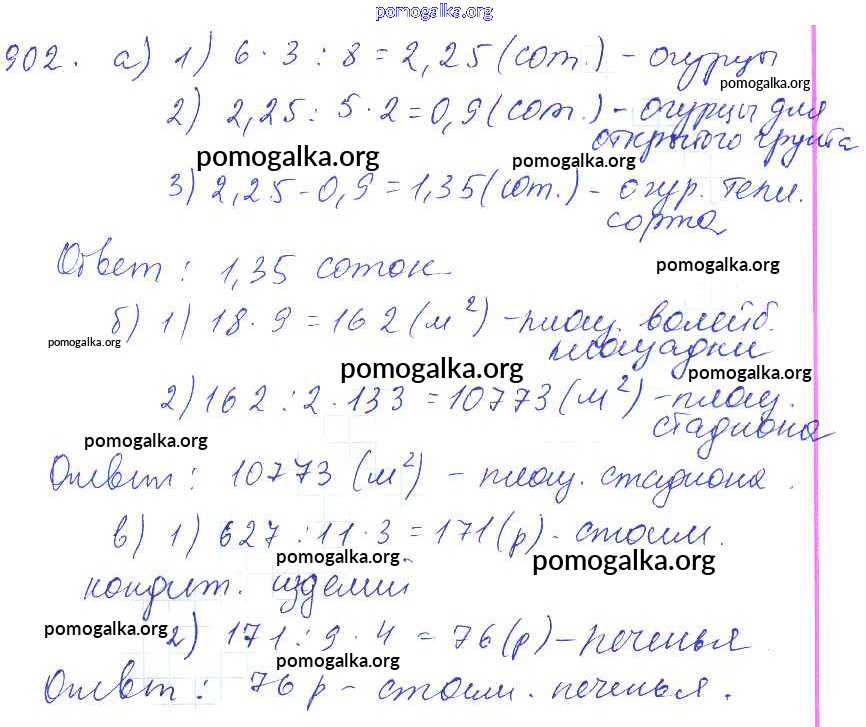 pomogalka.org
902. а) 1) 6 · 3 : 8 = 2,25 (сот.) - огурцы
pomogalka.org
2) 2,25 : 5 · 2 = 0,9 (сот.) - огурцы для
открытого грунта
pomogalka.org pomogalka.org
3) 2,25 - 0,9 = 1,35 (сот.) - огур. тепл.
сорта
Ответ : 1,35 соток
pomogalka.org
б) 1) 18 · 9 = 162 (м²) - площ. волейб.
pomogalka.org
площадки
pomogalka.org pomogalka.org
2) 162 : 2 · 133 = 10773 (м²) - площ.
стадиона
pomogalka.org
Ответ : 10773 (м²) - площ. стадиона .
в) 1) 627 : 11 · 3 = 171 (р) - стоим.
pomogalka.org pomogalka.org
кондит. изделий
pomogalka.org
2) 171 : 9 · 4 = 76 (р) - печенья
pomogalka.org
Ответ : 76 р - стоим. печенья .